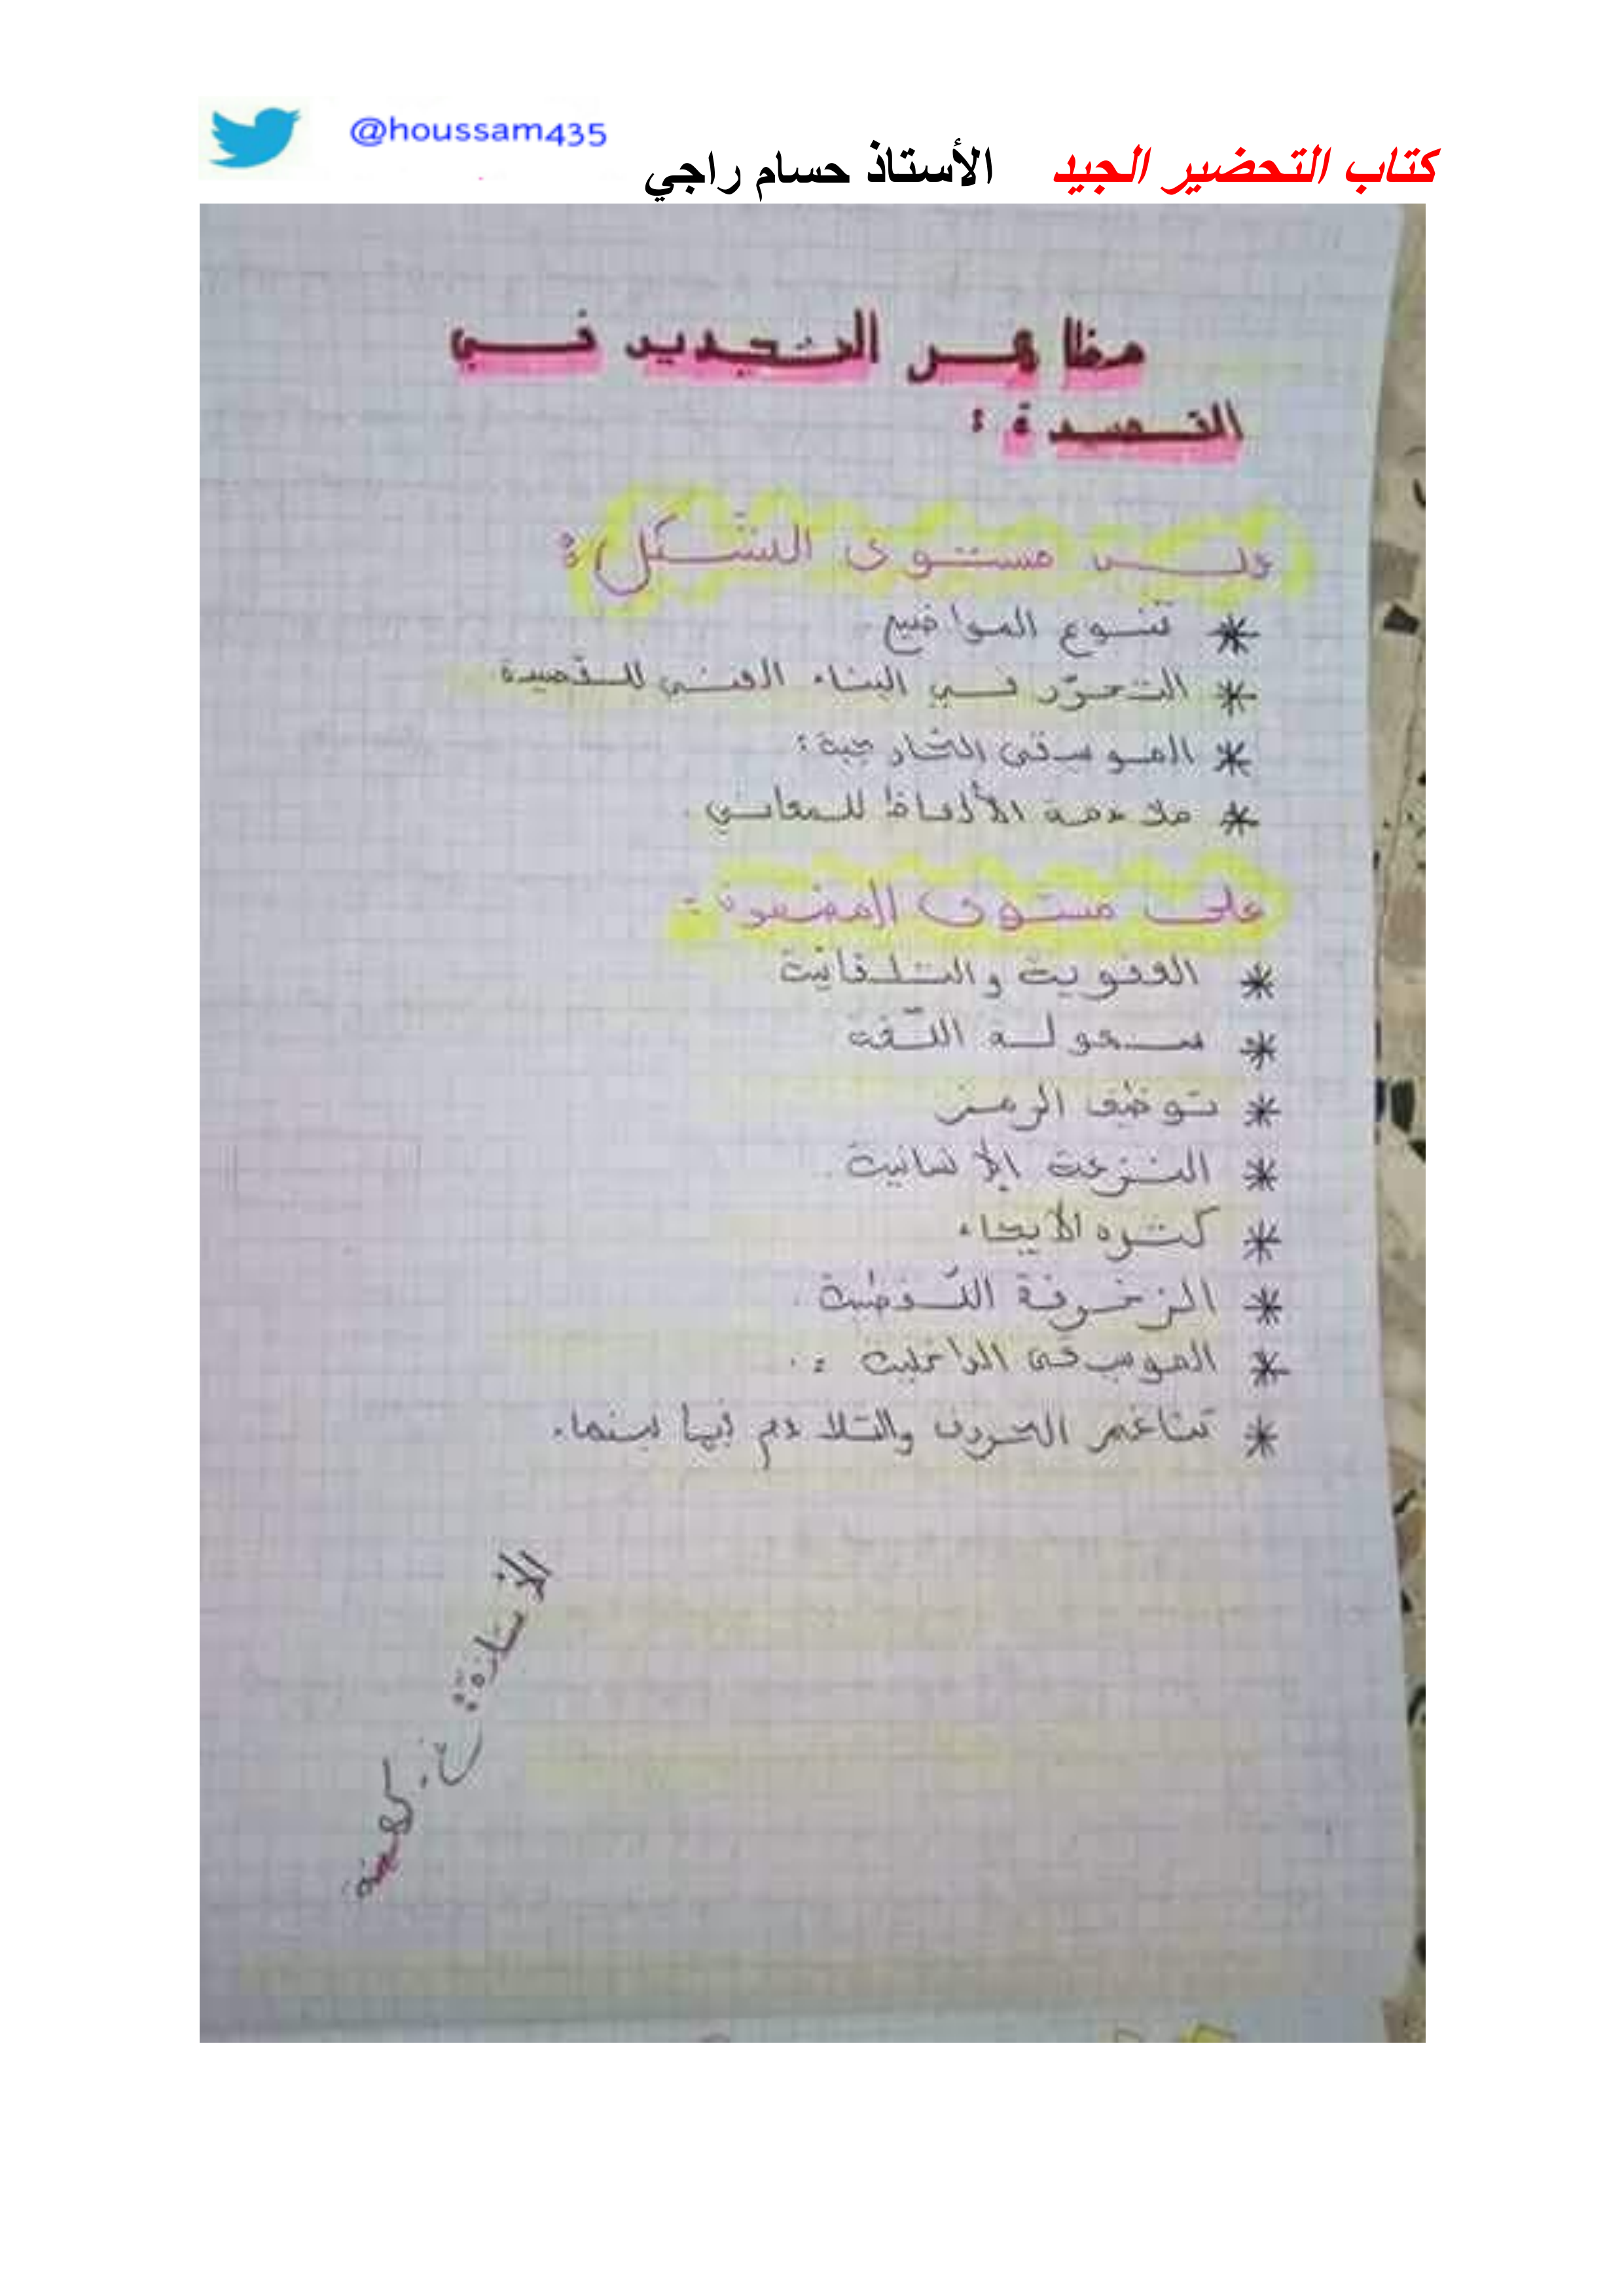 @houssam435
كتاب التحضير الجيد الأستاذ حسام راجي
مظاهر التجديد في
القصيدة :
على مستوى الشّكل :
* تنوع المواضيع.
* التحرّر في البناء الفني للقصيدة.
* الموسيقى الخارجية :
* ملاءمة الألفاظ للمعاني.
على مستوى المضمون :
* العفوية والتلقائية
* سهولة اللّغة
* توظيف الرمز
* النزعة الإنسانية.
* كثرة الايحاء
* الزخرفة اللّفظية.
* الموسيقى الداخلية :
* تناغم الحروف والتلاءم فيها بينها.
الأستاذة :